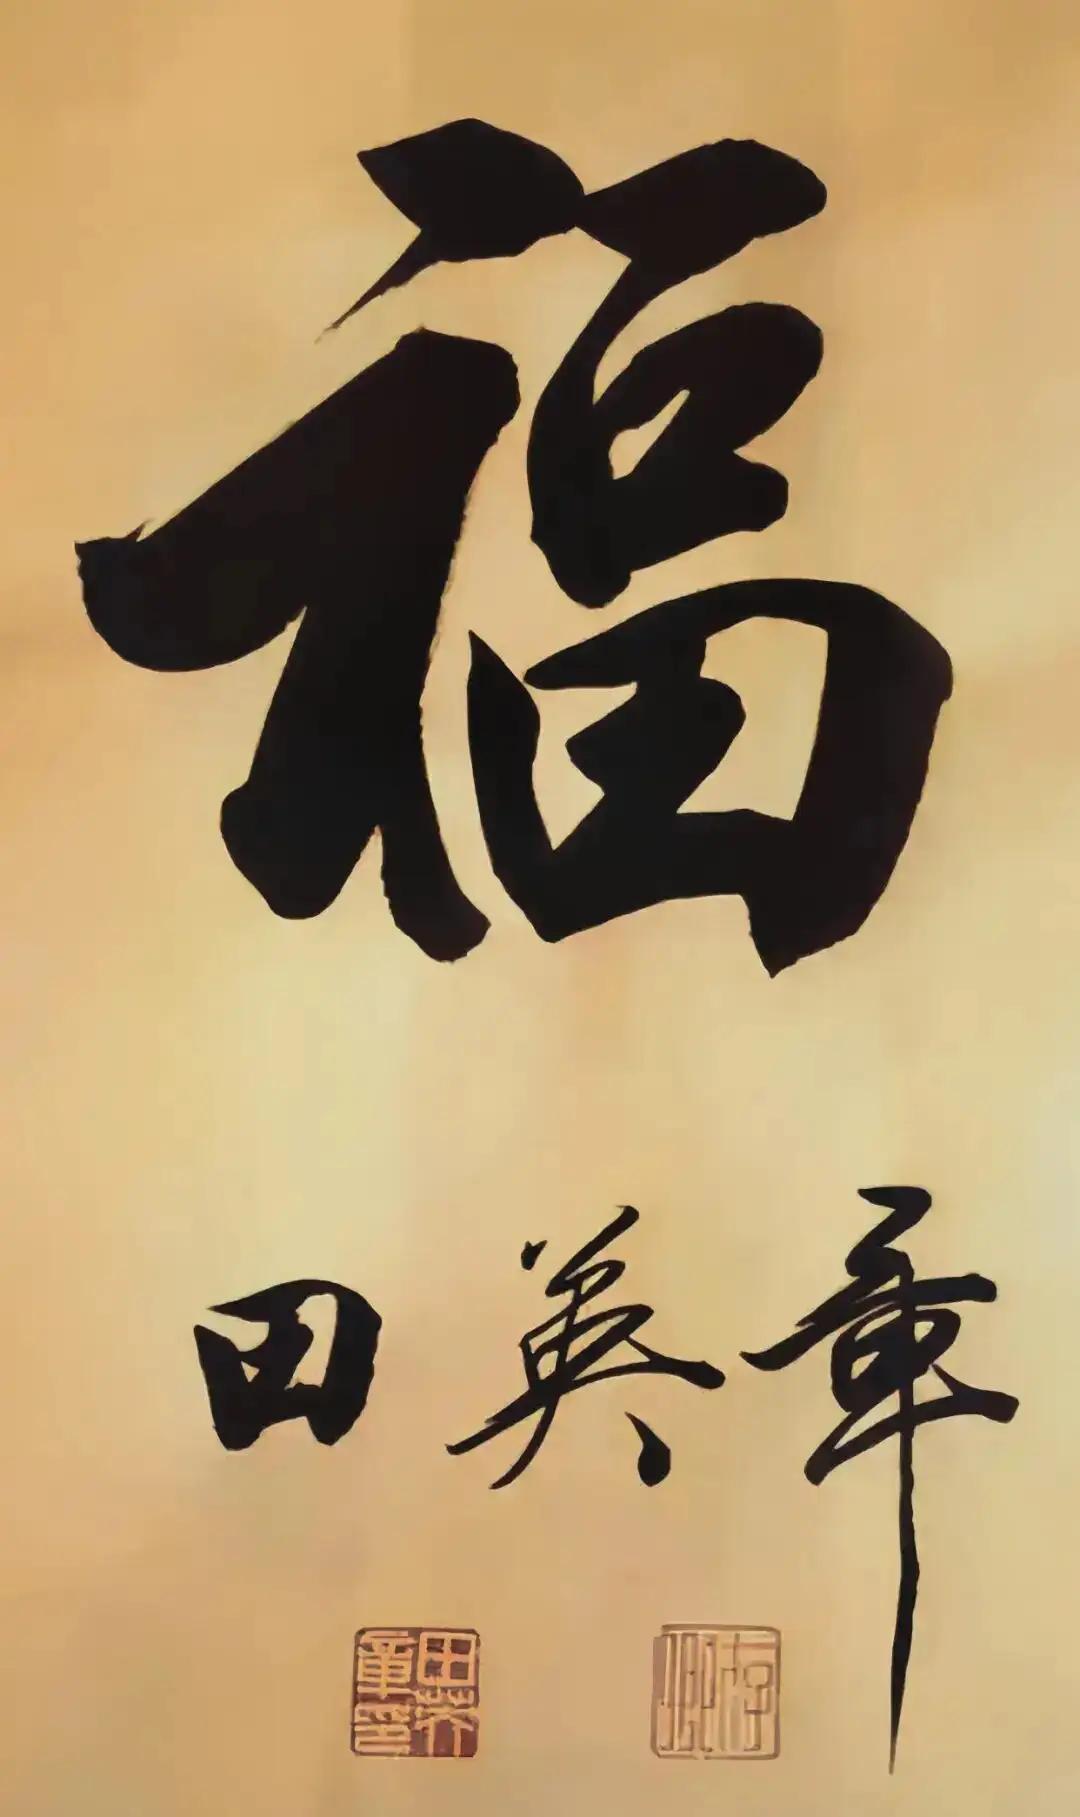 福
田英章
田英章印
存卿